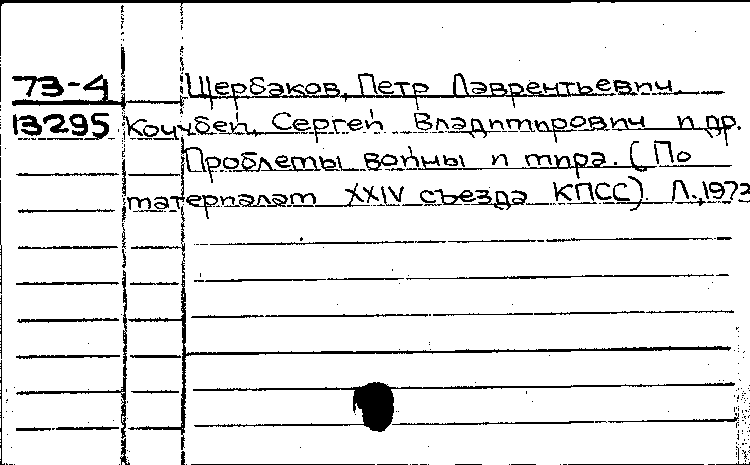 73-4 Щербаков, Петр Лаврентьевич.
13295 Кочубей, Сергей Владимирович и др.
Проблемы войны и мира. (По
материалам XXIV съезда КПСС). Л., 1973